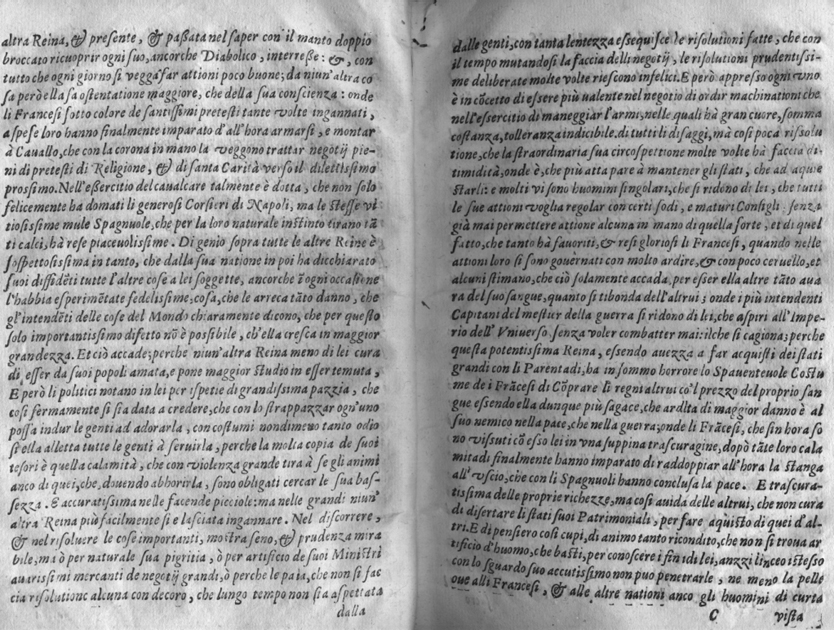 altra Reina, & presente, & passata nel saper con il manto doppio
broccato ricuoprir ogni suo, ancorche Diabolico, interresse: &, con
tutto che ogni giorno si vegga far attioni poco buone; da niun'altra co
sa però ella fa ostentatione maggiore, che della sua conscienza: onde
li Francesi sotto colore de santissimi pretesti tante volte ingannati,
a spese loro hanno finalmente imparato d'all'hora armarsi, e montar
à Cauallo, che con la corona in mano la veggono trattar negotij pie-
ni di pretesti di Religione, & di santa Carità verso il dilettissimo
prossimo. Nell'essercitio del caualcare talmente è dotta, che non solo
felicemente ha domati li generosi Corsieri di Napoli, ma le stesse vi
tiosissime mule Spagnuole, che per la loro naturale instinto tirano tā
ti calci, hà rese piaceuolissime. Di genio sopra tutte le altre Reine è
sospettosissima in tanto, che dalla sua natione in poi ha dicchiarato
suoi diffidēti tutte l'altre cose a lei soggette, ancorche ī ogni occasione
l'habbia esperimētate fedelissime; cosa, che le arreca tāto danno, che
gl'intendēti delle cose del Mondo chiaramente dicono, che per questo
solo importantissimo difetto nō è possibile, ch'ella cresca in maggior
grandezza. Et ciò accade; perche niun'altra Reina meno di lei cura
di esser da suoi popoli amata, e pone maggior studio in esser temuta,
E però li politici notano in lei per ispetie di grandissima pazzia, che
così fermamente si sia data a credere, che con lo strappazzar ogn'uno
possa indur le genti ad adorarla, con costumi nondimeno tanto odio
si ella alletta tutte le genti à seruirla, perche la molta copia de suoi
tesori è quella calamità, che con violenza grande tira à se gli animi
anco di quei, che, douendo abhorirla, sono obligati cercar le sua bas-
sezza. E accuratissima nelle facende picciole: ma nelle grandi niun'
altra Reina più facilmente si e lasciata ingannare. Nel discorrere,
& nel risoluere le cose importanti, mostra seno, & prudenza mira
bile, ma ò per naturale sua pigritia, ò per artificio de suoi Ministri
auarissimi mercanti de negotij grandi, ò perche le paia, che non si fac
cia risolutione alcuna con decoro, che lungo tempo non sia aspettata
dalla
dalle genti, con tanta lentezza essequisce le risolutioni fatte, che con
il tempo mutandosi la faccia delli negotij, le risolutioni prudentissi-
me deliberate molte volte riescono infelici. E però appresso ogni vno
è in cōcetto di essere più ualente nel negotio di ordir machinationi che
nell'essercitio di maneggiar l'armi, nelle quali hà gran cuore, somma
costanza, tolleranza indicibile di tutti li disaggi, ma così poca risolu
tione, che la straordinaria sua circospettione molte volte hà faccia di
timidità, onde è, che più atta pare à mantener gli stati, che ad aqui
starli: e molti vi sono huomini singolari, che si ridono di lei, che tutte
le sue attioni voglia regolar con certi sodi, e maturi Consigli senza
già mai permettere attione alcuna in mano di quella sorte, et di quel
fatto, che tanto hà fauoriti, & resi gloriosi li Francesi, quando nelle
attioni loro si sono gouernati con molto ardire, & con poco ceruello, et
alcuni stimano, che ciò solamente accada, per esser ella altre tāto aua
ra del suo sangue, quanto sitibonda dell'altrui; onde i più intendenti
Capitani del mestier della guerra si ridono di lei, che aspiri all'Impe-
rio dell'Vniuerso senza voler combatter mai: ilche si cagiona; perche
questa potentissima Reina, essendo auezza a far acquisti dei stati
grandi con li Parentadi, ha in sommo horrore lo Spauenteuole Costu
me de i Frācesi di Cōprare li regni altrui cō'l prezzo del proprio san
gue essendo ella dunque più sagace, che ardita di maggior danno è al
suo nemico nella pace, che nella guerra; onde li Frācesi, che fin'hora so
no vissuti cō esso lei in vna suppina trascuragine, dopò tāte loro cala
mità di finalmente hanno imparato di raddoppiar all'hora la stanga
all'vscio, che con li Spagnuoli hanno conclusa la pace. E trascura-
tissima delle proprie richezze, ma così auida delle altrui, che non cura
di disertare li stati suoi Patrimoniali, per fare aquisto di quei d'al-
tri. E di pensiero così cupi, di animo tanto ricondito, che non si troua ar
tificio d'huomo, che basti, per conoscere i fini di lei, anzzi linceo istesso
con lo sguardo suo accutissimo non può penetrarle, ne meno la pelle
oue alli Francesi, & alle altre nationi anco gli huomini di curta
C vista